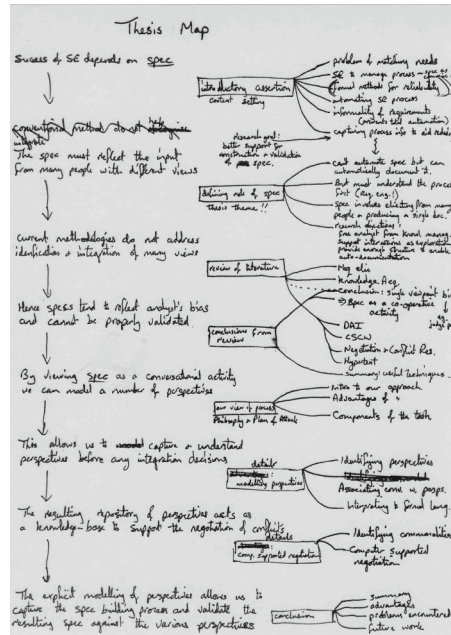 Thesis Map
Success of SE depends on spec
conventional method do not
integrate
The spec must reflect the input
from many people with different views
Current methodologies do not address
identification & integration of many views
Hence specs tend to reflect analyst's bias
and cannot be properly validated.
By viewing spec as a conversational activity
we can model a number of perspectives
This allows us to capture & understand
perspectives before any integration decisions
The resulting repository of perspectives acts as
a knowledge-base to support the negotiation of conflicts
The explicit modelling of perspectives allows us to
capture the spec building process and validate the
resulting spec against the various perspectives
introductory assertion
context setting
problem of matching needs
SE to manage process
formal methods for reliability
automating SE process
informality of requirements
capturing process info to aid
research goal:
better support for
construction & validation
of spec.
defining role of spec
thesis theme!!
can't automate spec but can
automatically document it.
But must understand the process
first (Req. eng.!)
Spec involves eliciting from many
people & producing a single doc.
research objectives:
free analyst from
support interactions as
provide enough structure to enable
auto-documentation
review of literature
Meg elic
Knowledge Acq
conclusion: single viewpoint
Spec as a co-operative
activity
eg.
conclusions from
review
DAI
CSCW
Negotiation & Conflict Res.
Hypertext
Summary: useful techniques
our view of process
Philosophy & Plan of Attack
Intro to our approach
Advantages of "
Components of the task
details
modelling perspectives
Identifying perspectives
Associating conv. w. persps.
Interpreting to formal lang.
details
comp. supported negotiation
Identifying commonalities
Computer supported
negotiation
conclusion
summary
advantages
problems encountered
future work